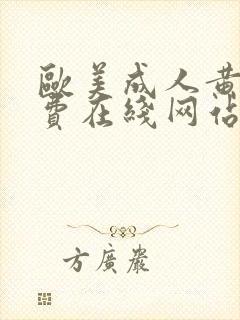 歐美成人黄
費在綫网站
方廣嚴